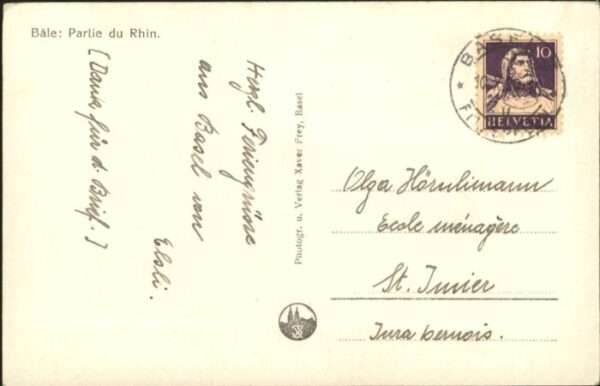 Bâle: Partie du Rhin.
Herzl. Feriengrüsse
aus Basel von
Elsli.
[Dank für d. Brief.]
Photogr. u. Verlag Xaver Frey, Basel
BASEL
10
HELVETIA
Olga Hörnlimann
Ecole ménagère
St. Imier
Jura bernois.